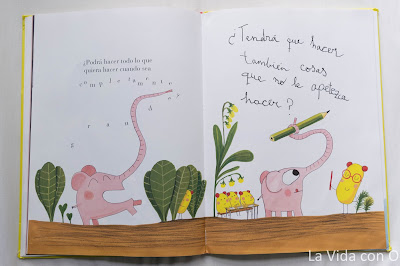 ¿Podrá hacer todo lo que
quiera hacer cuando sea
completamente
grande
¿Tendrá que hacer
también cosas
que no le apetezca
hacer?
La Vida con O